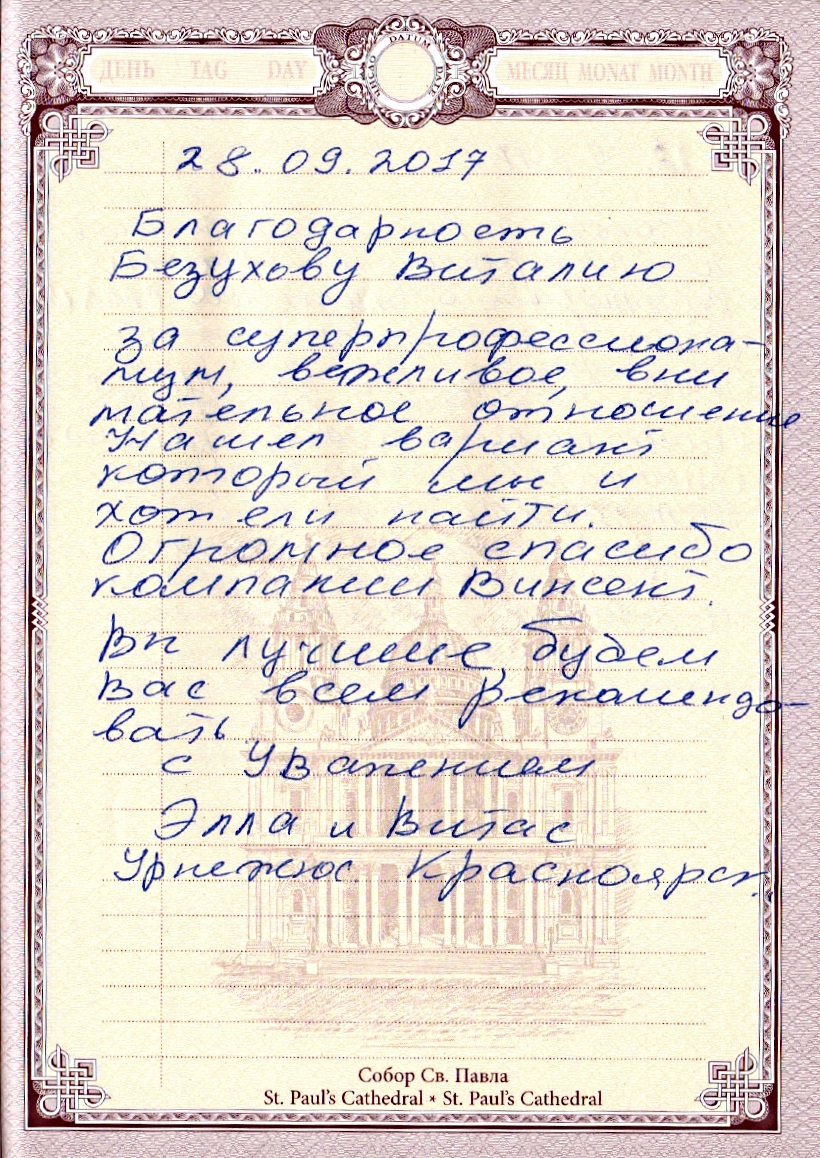 ДЕНЬ TAG DAY
ЧИСЛО DATUM DATE
МЕСЯЦ MONAT MONTH
28.09.2017
Благодарность
Безухову Виталию
за суперпрофессиона-
лизм, вежливое, вни
мательное отношение
Нашел вариант
который мы и
хотели найти.
Огромное спасибо
компании Винсент.
Вы лучшие, будем
Вас всем рекомендо-
вать
с Уважением
Элла и Витас
Урнежюс. Красноярск.
Собор Св. Павла
St. Paul's Cathedral * St. Paul's Cathedral